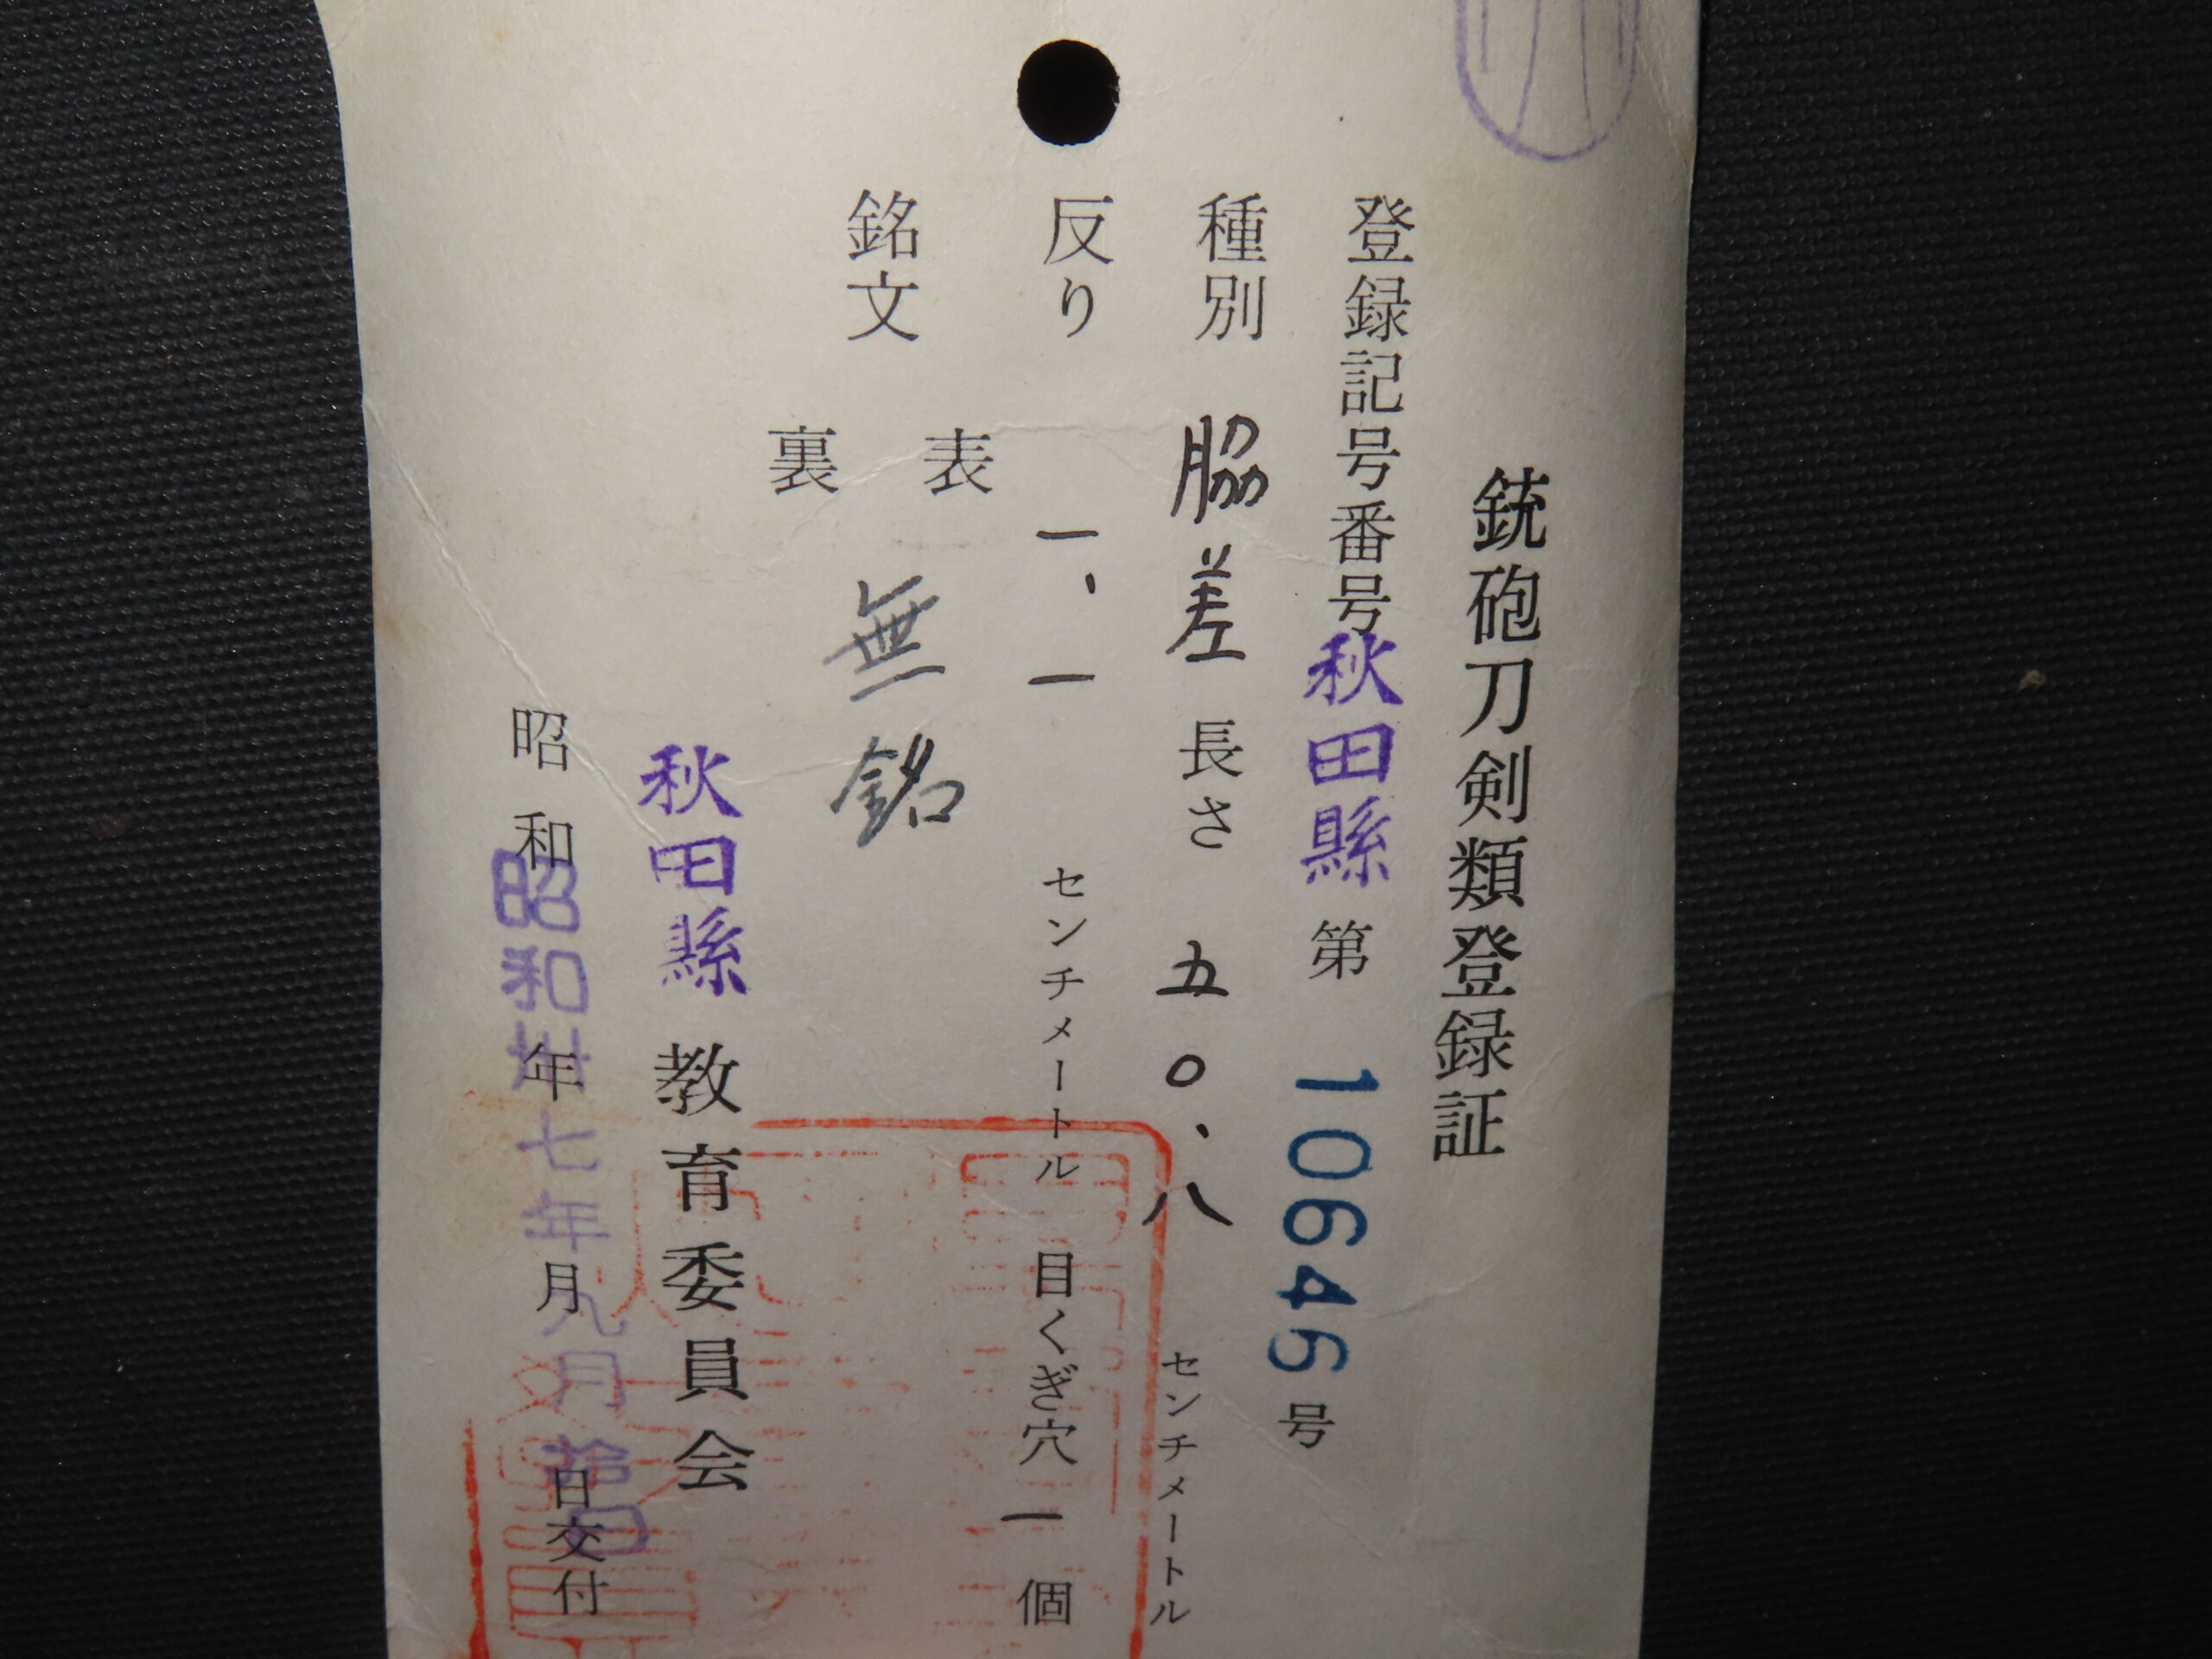 銃砲刀剣類登録証
登録記号番号秋田縣第10646号
種別 脇差 長さ 五〇.八 センチメートル
反り 一、一 センチメートル 目くぎ穴 一 個
銘文 表 無銘
裏
秋田縣教育委員会
昭和 年 月 日交付
昭和卅七年九月 日